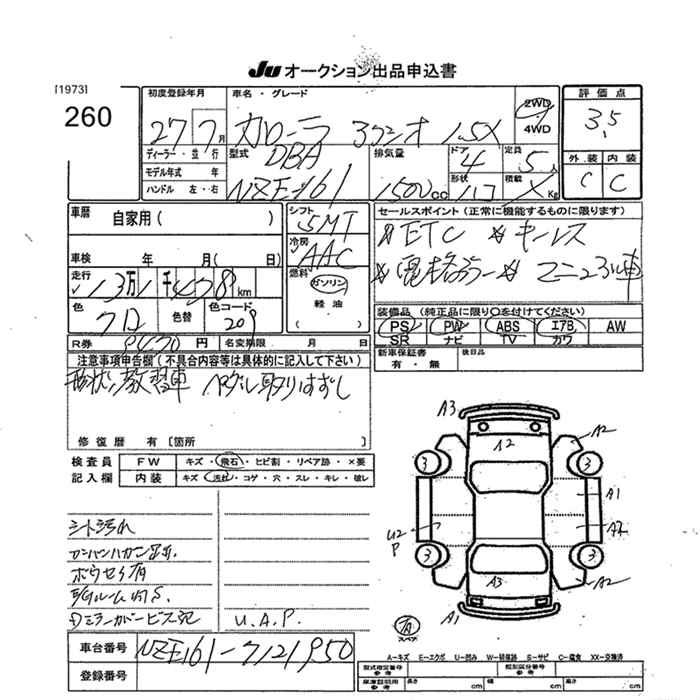 Ju オークション出品申込書
[1973]
260
初度登録年月
27 7月
車名・グレード
カローラ アクシオ 1.5X
2WD
4WD
評価点
3.5
ディーラー・並行
モデル年式 年
ハンドル 左・右
型式
DBA
NZE-161
排気量
1500cc
ドア
4
定員
5人
形状
積載
Kg
外装 内装
C C
車歴
自家用( )
シフト
5MT
冷房
AAC
セールスポイント(正常に機能するものに限ります)
ETC キーレス
車検 年 月( 日)
走行
km
燃料
ガソリン
軽油
( )
色
クロ
色替
色コード
209
装備品(純正品に限り○を付けてください)
PS PW ABS エアB AW
SR ナビ TV カワ
R券
円
名変期限 月 日
新車保証書
有・無
後日品
注意事項申告欄(不具合内容等は具体的に記入して下さい)
教習車 ペダル取りはずし
修復歴 有[箇所 ]
検査員
記入欄
FW キズ・飛石・ヒビ割・リペア跡・×要
内装 キズ・汚れ・コゲ・穴・スレ・キレ・破レ
A3
A2
A2
3
3
A1
U2
P
A2
3
3
A3
A2
A1
シート汚れ
U.A.P.
スペア
A−キズ E−エクボ U−凹み W−補修跡 S−サビ C−腐食 XX−交換済
車台番号
NZE161-7121950
登録番号
型式指定番号
参考
類別区分番号
参考
車庫証明用
参考
長さ cm
幅 cm
高さ cm